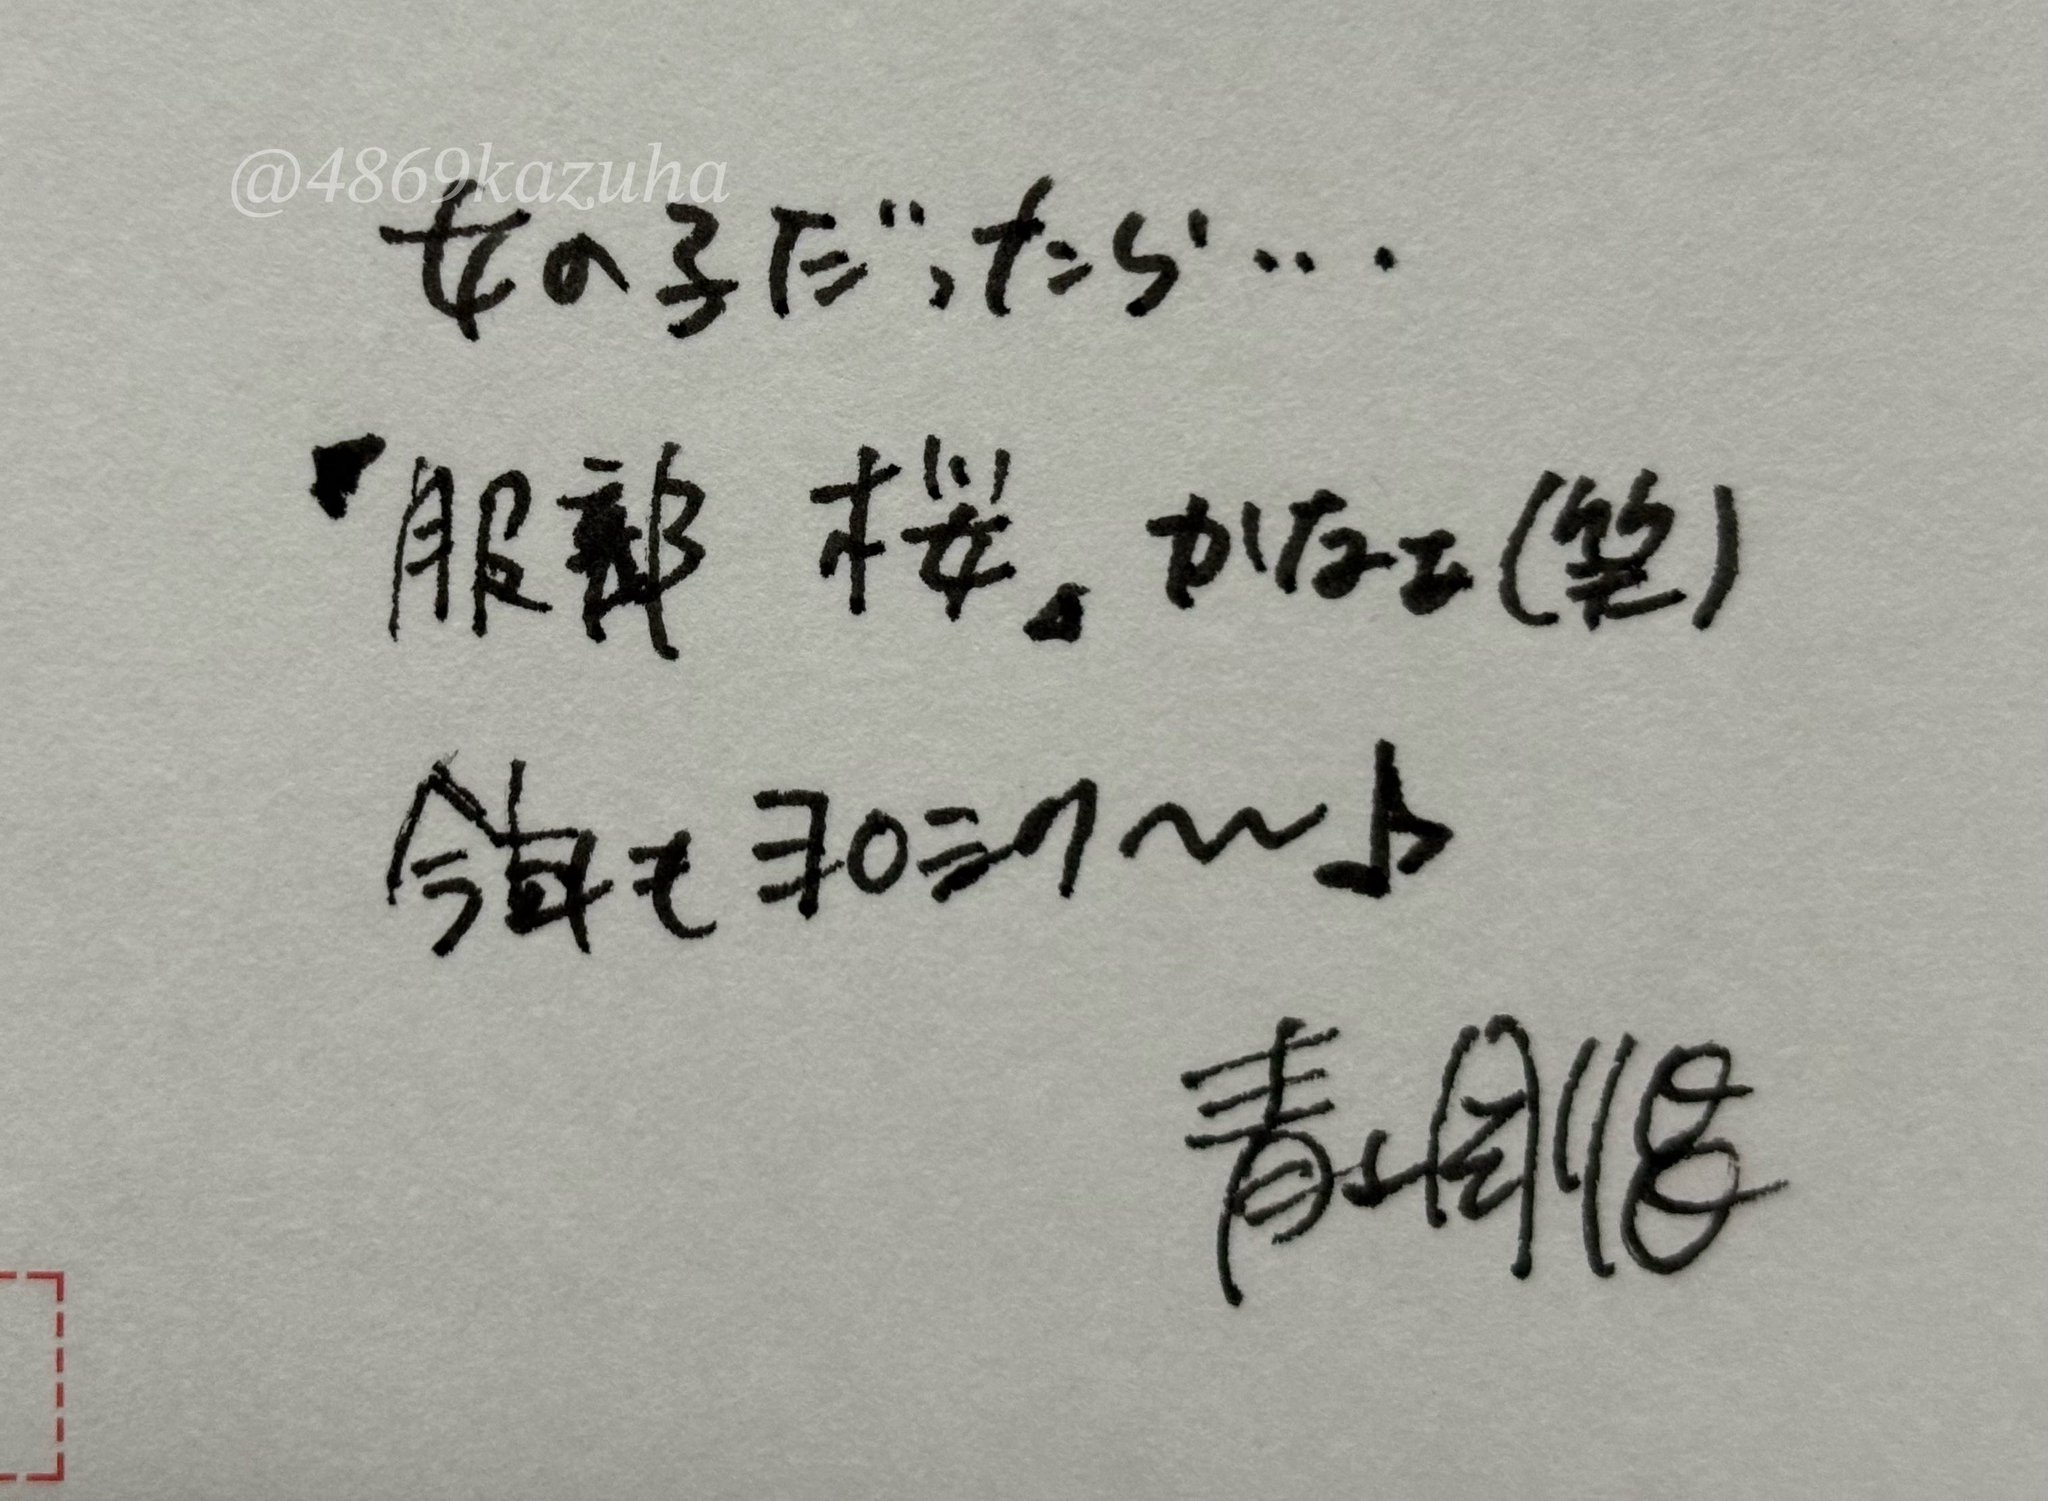 @4869kazuha
女の子だったら…
「服部 桜」かなェ(笑)
今年もヨロコのり〜♪
青山剛昌